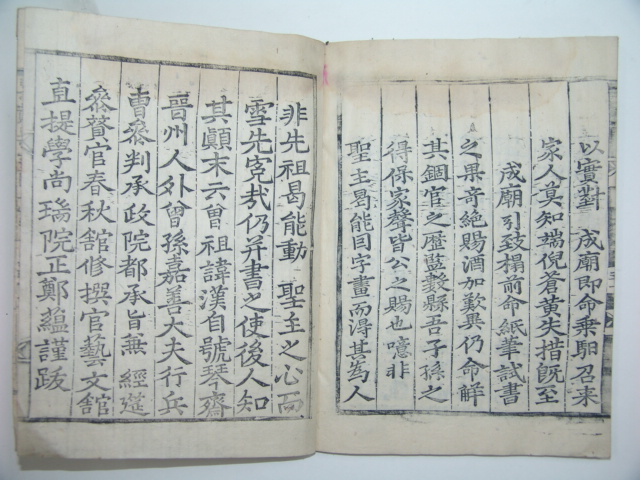 以實對 成廟即命乘馹召來
家人莫知端倪蒼黃失措旣至
成廟引致榻前命紙筆試書
之果奇絶賜酒加歎異仍命解
其錮官之歷監數縣吾子孫之
得保家聲皆公之賜也噫非
聖主曷能因字畫而得其爲人
非先祖曷能動 聖主之心而
雪先寃哉仍幷書之使後人知
其顚末云曾祖諱漢自號琴齋
晉州人外曾孫嘉善大夫行兵
曹參判承政院都承旨兼 經筵
參贊官春秋館修撰官藝文館
直提學尚瑞院正鄭蘊謹跋